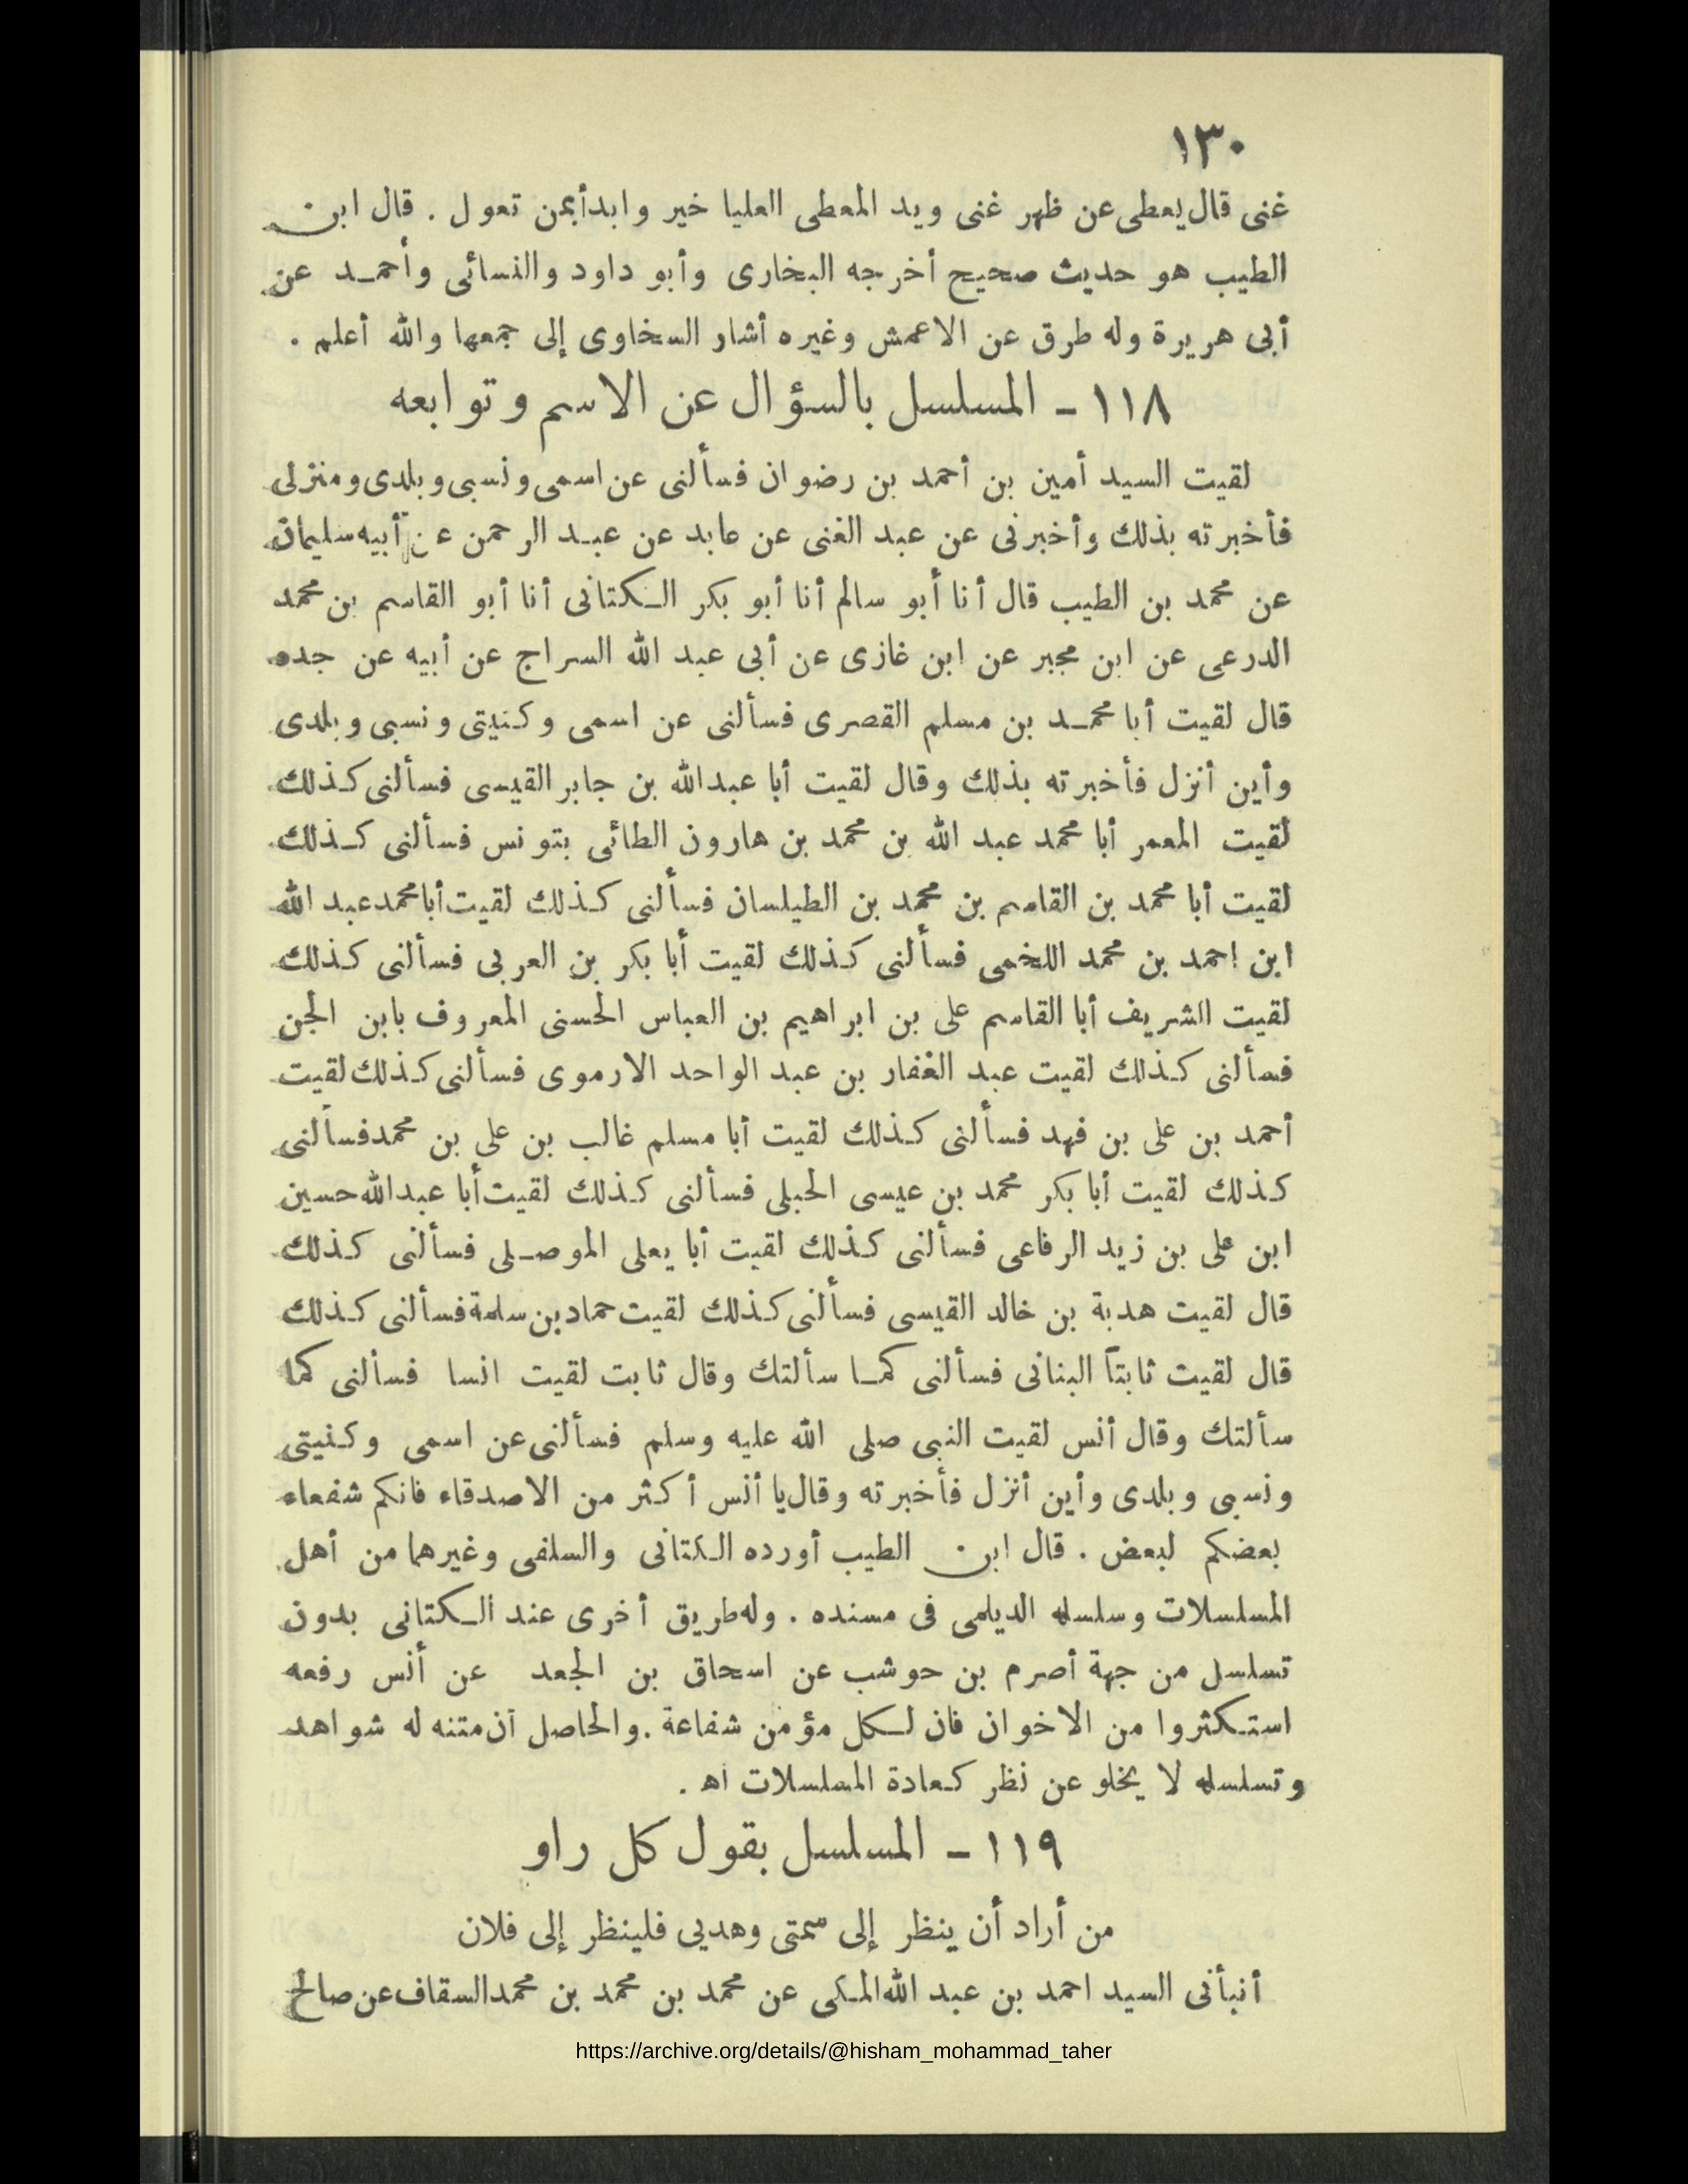 ١٣٠
غنى قال يعطى عن ظهر غنى ويد المعطى العليا خير وابدأ بمن تعول . قال ابن
الطيب هو حديث صحيح أخرجه البخارى وأبو داود والنسائى وأحمد عن
أبى هريرة وله طرق عن الاعمش وغيره أشار السخاوى إلى جمعها والله أعلم .
١١٨ – المسلسل بالسؤال عن الاسم وتوابعه
لقيت السيد أمين بن أحمد بن رضوان فسألنى عن اسمى ونسبى وبلدى ومنزلى
فأخبرته بذلك وأخبرنى عن عبد الغنى عن عابد عن عبد الرحمن عن أبيه سليمان
عن محمد بن الطيب قال أنا أبو سالم أنا أبو بكر الكتانى أنا أبو القاسم بن محمد
الدرعى عن ابن مجبر عن ابن غازى عن أبى عبد الله السراج عن أبيه عن جده
قال لقيت أبا محمد بن مسلم القصرى فسألنى عن اسمى وكنيتى ونسبى وبلدى
وأين أنزل فأخبرته بذلك وقال لقيت أبا عبدالله بن جابر القيسى فسألنى كذلك
لقيت المعمر أبا محمد عبد الله بن محمد بن هارون الطائى بتونس فسألنى كذلك
لقيت أبا محمد بن القاسم بن محمد بن الطيلسان فسألنى كذلك لقيت أبا محمد عبد الله
ابن احمد بن محمد اللخمى فسألنى كذلك لقيت أبا بكر بن العربى فسألنى كذلك
لقيت الشريف أبا القاسم على بن ابراهيم بن العباس الحسنى المعروف بابن الجن
فسألنى كذلك لقيت عبد الغفار بن عبد الواحد الارموى فسألنى كذلك لقيت
أحمد بن على بن فهد فسألنى كذلك لقيت أبا مسلم غالب بن على بن محمد فسألنى
كذلك لقيت أبا بكر محمد بن عيسى الحبلى فسألنى كذلك لقيت أبا عبدالله حسين
ابن على بن زيد الرفاعى فسألنى كذلك لقيت أبا يعلى الموصلى فسألنى كذلك
قال لقيت هدبة بن خالد القيسى فسألنى كذلك لقيت حماد بن سلمة فسألنى كذلك
قال لقيت ثابتاً البنانى فسألنى كما سألتك وقال ثابت لقيت انسا فسألنى كما
سألتك وقال أنس لقيت النبى صلى الله عليه وسلم فسألنى عن اسمى وكنيتى
ونسبى وبلدى وأين أنزل فأخبرته وقال يا أنس أكثر من الاصدقاء فانكم شفعاء
بعضكم لبعض . قال ابن الطيب أورده الكتانى والسلفى وغيرهما من أهل
المسلسلات وسلسله الديلمى فى مسنده . وله طريق أخرى عند الكتانى بدون
تسلسل من جهة أصرم بن حوشب عن اسحاق بن الجعد عن أنس رفعه
استكثروا من الاخوان فان لكل مؤمن شفاعة . والحاصل أن متنه له شواهد
وتسلسله لا يخلو عن نظر كعادة المسلسلات اه .
١١٩ – المسلسل بقول كل راو
من أراد أن ينظر إلى سمتى وهديى فلينظر إلى فلان
أنبأنى السيد احمد بن عبد الله المكى عن محمد بن محمد بن محمد السقاف عن صالح
https://archive.org/details/@hisham_mohammad_taher